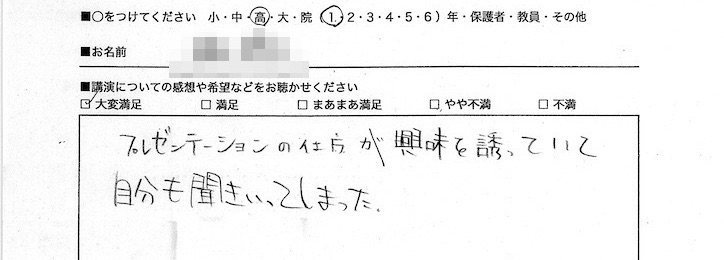 ■○をつけてください 小・中・高・大・院（1・2・3・4・5・6）年・保護者・教員・その他
■お名前
■講演についての感想や希望などをお聴かせください
☑大変満足 □満足 □まあまあ満足 □やや不満 □不満
プレゼンテーションの仕方が興味を誘っていて
自分も聞きいってしまった。